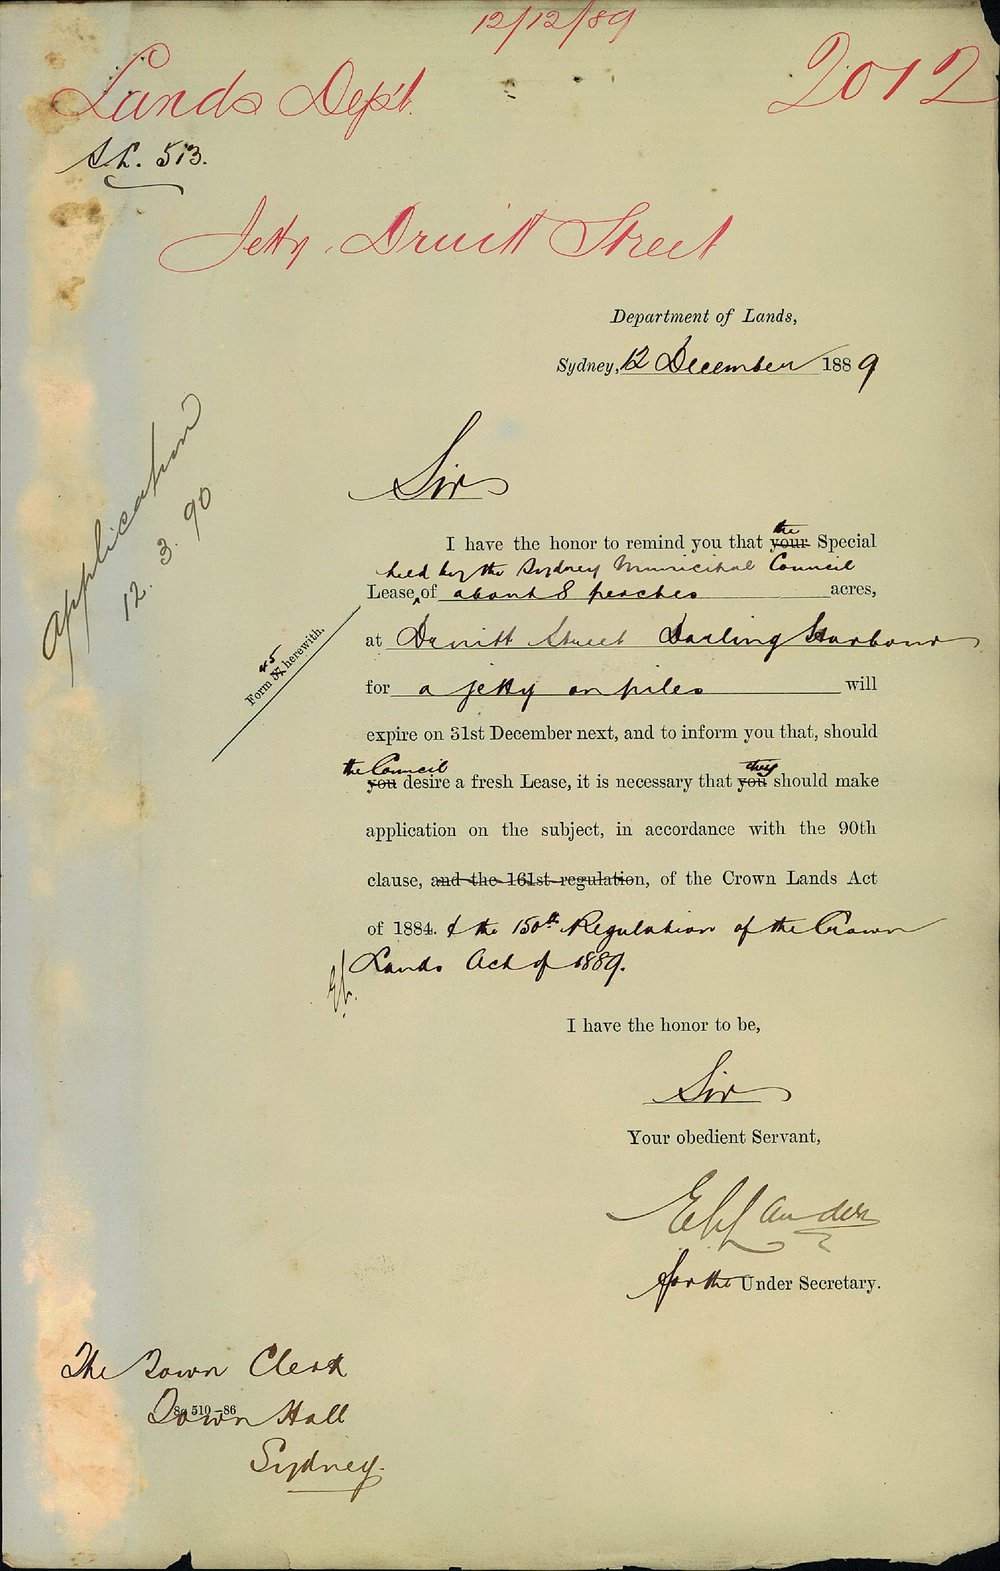 12/12/89
Lands Dep't. 2012
S.L. 513.
Jetty Druitt Street
Department of Lands,
Sydney, 12 December 1889
Sir
I have the honor to remind you that your the Special
held by the Sydney Municipal Council
Lease, of about 8 perches acres,
at Druitt Street Darling Harbour
for a jetty on piles will
expire on 31st December next, and to inform you that, should
the Council they
you desire a fresh Lease, it is necessary that you should make
application on the subject, in accordance with the 90th
clause, and the 161st regulation, of the Crown Lands Act
of 1884. & the 150th Regulation of the Crown
Lands Act of 1889.
I have the honor to be,
Sir
Your obedient Servant,
for the Under Secretary.
Application
12. 3. 90
45
Form herewith.
The Town Clerk
510–86
Town Hall
Sydney.